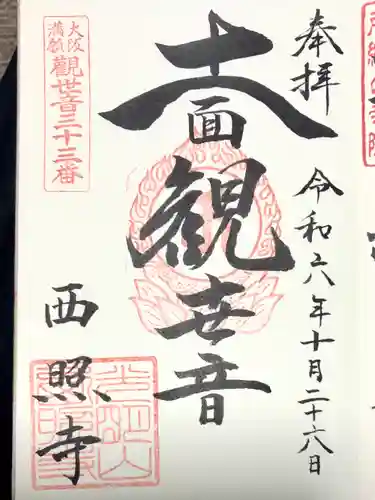 奉拝
令和六年十月二十六日
十一面
観世音
大阪
満願
觀世音三十三番
西照寺